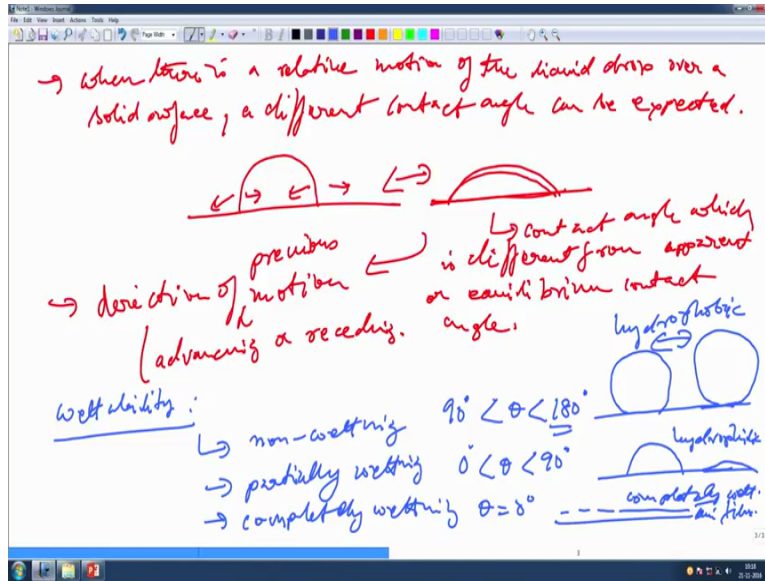 Note1 - Windows Journal
File Edit View Insert Actions Tools Help
Page Width
B I
→ when there is a relative motion of the liquid drop over a
solid surface, a different contact angle can be expected.
↳ contact angle which
is different from apparent
or equilibrium contact
angle.
previous
→ direction of motion
(advancing or receding.
hydrophobic
wettability :
↳ non-wetting 90° < θ < 180°
→ partially wetting 0° < θ < 90°
→ completely wetting θ = 0°
hydrophilic
completely wett.
film.
3/3
3
10:18
21-11-2016